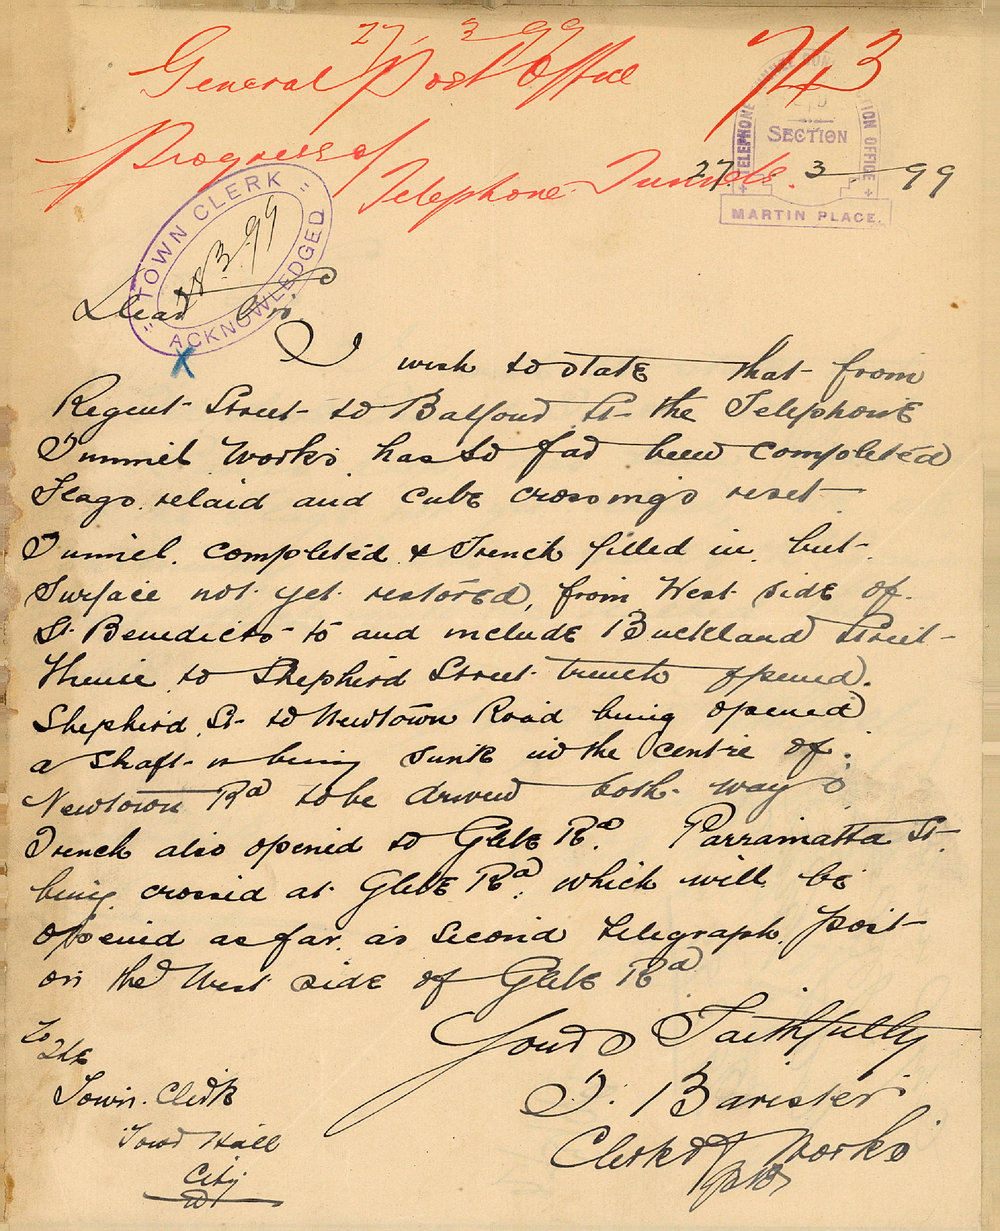 27. 3 99
General Post Office
743
Progress of
Telephone Tunnels.
TELEPHONE TUNNEL CONSTRUCTION OFFICE
SECTION
MARTIN PLACE.
27. 3 99
"TOWN CLERK"
28.3.99
ACKNOWLEDGED
Dear Sir
X
I wish to state that from
Regent Street to Balfour St the Telephone
Tunnel Works has so far been completed
Flags relaid and Cube crossings reset
Tunnel completed & Trench filled in but
Surface not yet restored, from West side of
St. Benedicts to and include Buckland Street
thence to Shepherd Street trench opened.
Shepherd St to Newtown Road being opened
a shaft is being sunk in the centre of
Newtown Rd to be drived both ways
Trench also opened to Glebe Rd. Parramatta St
being crossed at Glebe Rd. which will be
opened as far as Second telegraph post
on the West side of Glebe Rd
Yours Faithfully
T. Barister
Clerk of Works
To
The
Town Clerk
Town Hall
City